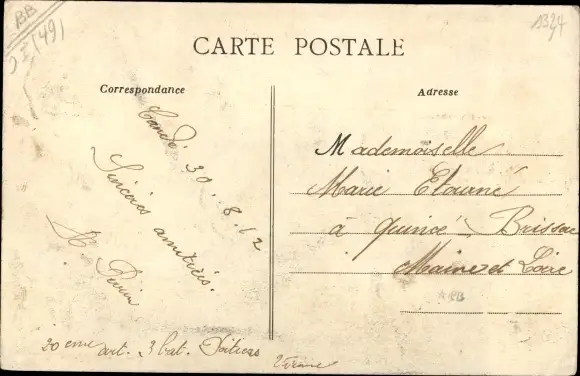 BB
(49)
1324
CARTE POSTALE
Correspondance
Candé 30.8.12
Sincères amitiés.
H. Perrin
20eme art. 3 bat. Poitiers
Vienne
Adresse
Mademoiselle
Marie Etourné
à Quincé Brissac
Maine et Loire